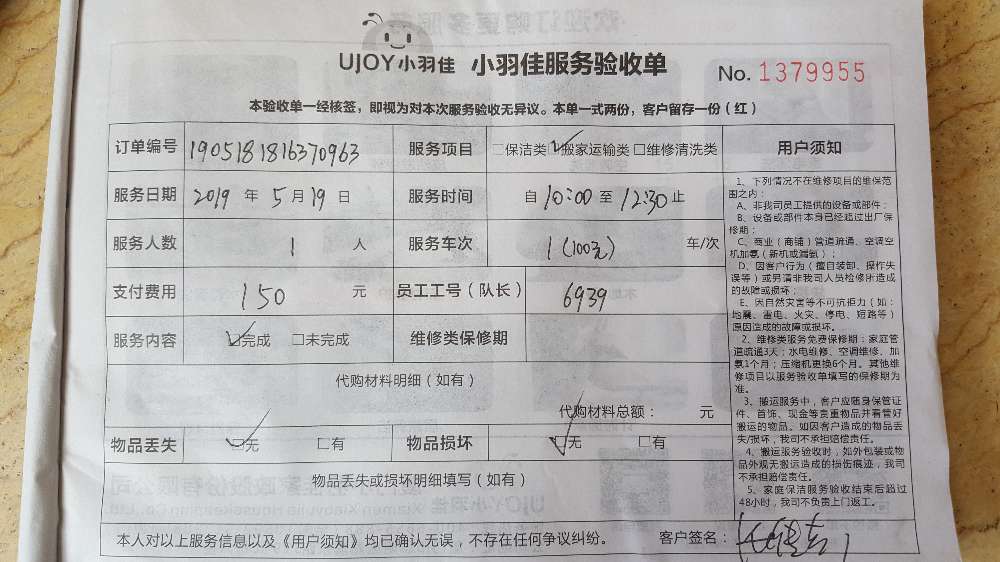 UJOY小羽佳 小羽佳服务验收单 No. 1379955
本验收单一经核签，即视为对本次服务验收无异议。本单一式两份，客户留存一份（红）
订单编号 190518181637​0963 服务项目 □保洁类 ☑搬家运输类 □维修清洗类
服务日期 2019 年 5 月 19 日 服务时间 自 10:00 至 12:30 止
服务人数 1 人 服务车次 1(100元) 车/次
支付费用 150 元 员工工号（队长） 6939
服务内容 ☑完成 □未完成 维修类保修期
代购材料明细（如有）
代购材料总额： 元
物品丢失 ☑无 □有 物品损坏 ☑无 □有
物品丢失或损坏明细填写（如有）
本人对以上服务信息以及《用户须知》均已确认无误，不存在任何争议纠纷。 客户签名：
用户须知
1、下列情况不在维修项目的维保范
围之内：
A、非我司员工提供的设备或部件；
B、设备或部件本身已经超过出厂保
修期；
C、商业（商铺）管道疏通、空调空
机加氨（新机或漏氨）；
D、因客户行为（擅自装卸、操作失
误等）或另请非我司人员检修所造成
的故障或损坏；
E、因自然灾害等不可抗拒力（如：
地震、雷电、火灾、停电、短路等）
原因造成的故障或损坏。
2、维修类服务免费保修期：家庭管
道疏通3天；水电维修、空调维修、加
氨1个月；压缩机更换6个月。其他维
修项目以服务验收单填写的保修期为
准。
3、搬运服务中，客户应随身保管证
件、首饰、现金等贵重物品并看管好
搬运的物品。如因客户造成的物品丢
失/损坏，我司不承担赔偿责任。
4、搬运服务验收时，如外包装或物
品外观无搬运造成的损伤痕迹，我司
不承担赔偿责任。
5、家庭保洁服务验收结束后超过
48小时，我司不负责上门返工。